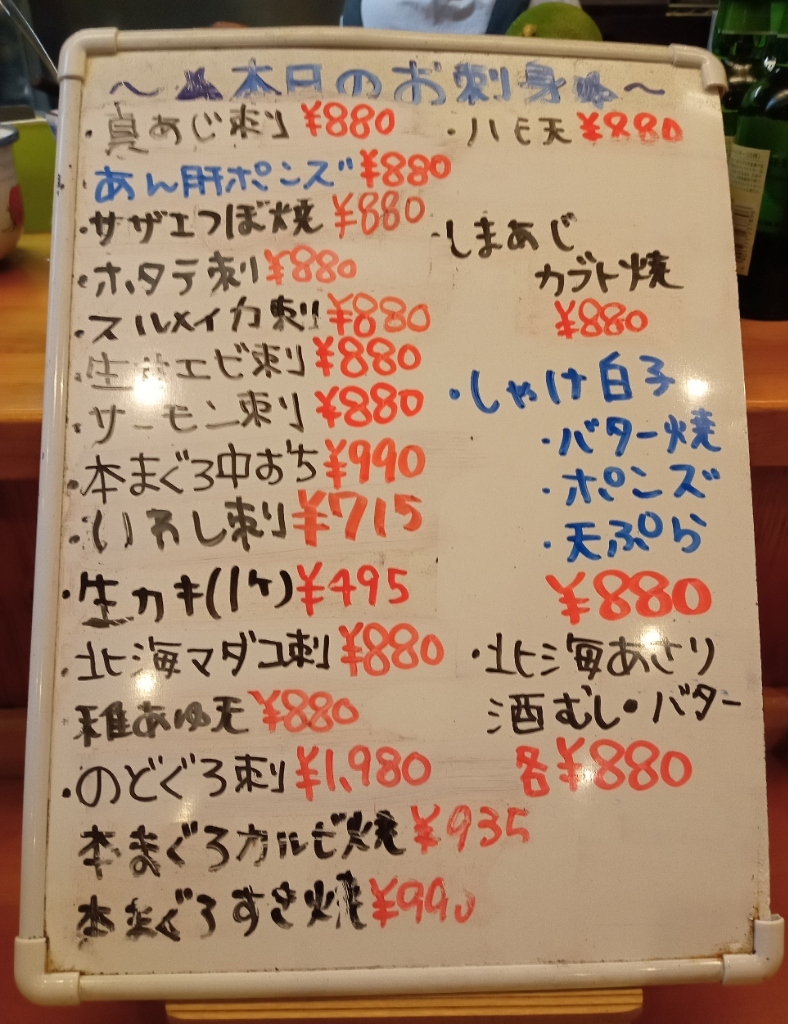 ～本日のお刺身～
・真あじ刺り ¥880
あん肝ポンズ ¥880
・サザエつぼ焼 ¥880
・ホタテ刺り ¥880
・スルメイカ刺り ¥880
・生サエビ刺り ¥880
・サーモン刺り ¥880
・本まぐろ中おち ¥990
・いわし刺り ¥715
・生カキ(1ケ) ¥495
・北海マダコ刺り ¥880
稚あゆ天 ¥880
・のどぐろ刺り ¥1,980
本まぐろカルビ焼 ¥935
本まぐろすき焼 ¥990
・ハモ天 ¥880
・しまあじ
カブト焼
¥880
・しゃけ白子
・バター焼
・ポンズ
・天ぷら
¥880
・北海あさり
酒むし・バター
各¥880